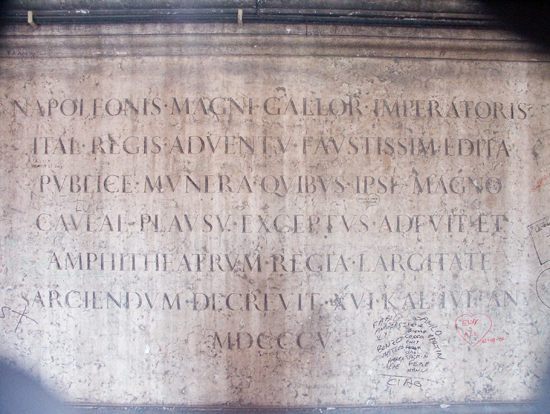 NAPOLEONIS·MAGNI·GALLOR·IMPERATORIS
ITAL·REGIS·ADVENTV·FAVSTISSIM·EDITA
PVBLICE·MVNERA·QVIBVS·IPSE·MAGNO
CAVEAE·PLAVSV·EXCEPTVS·ADFVIT·ET
AMPHITHEATRVM·REGIA·LARGITATE
SARCIENDVM·DECREVIT·XVI·KAL·IVL·AN
MDCCCV
CIAO